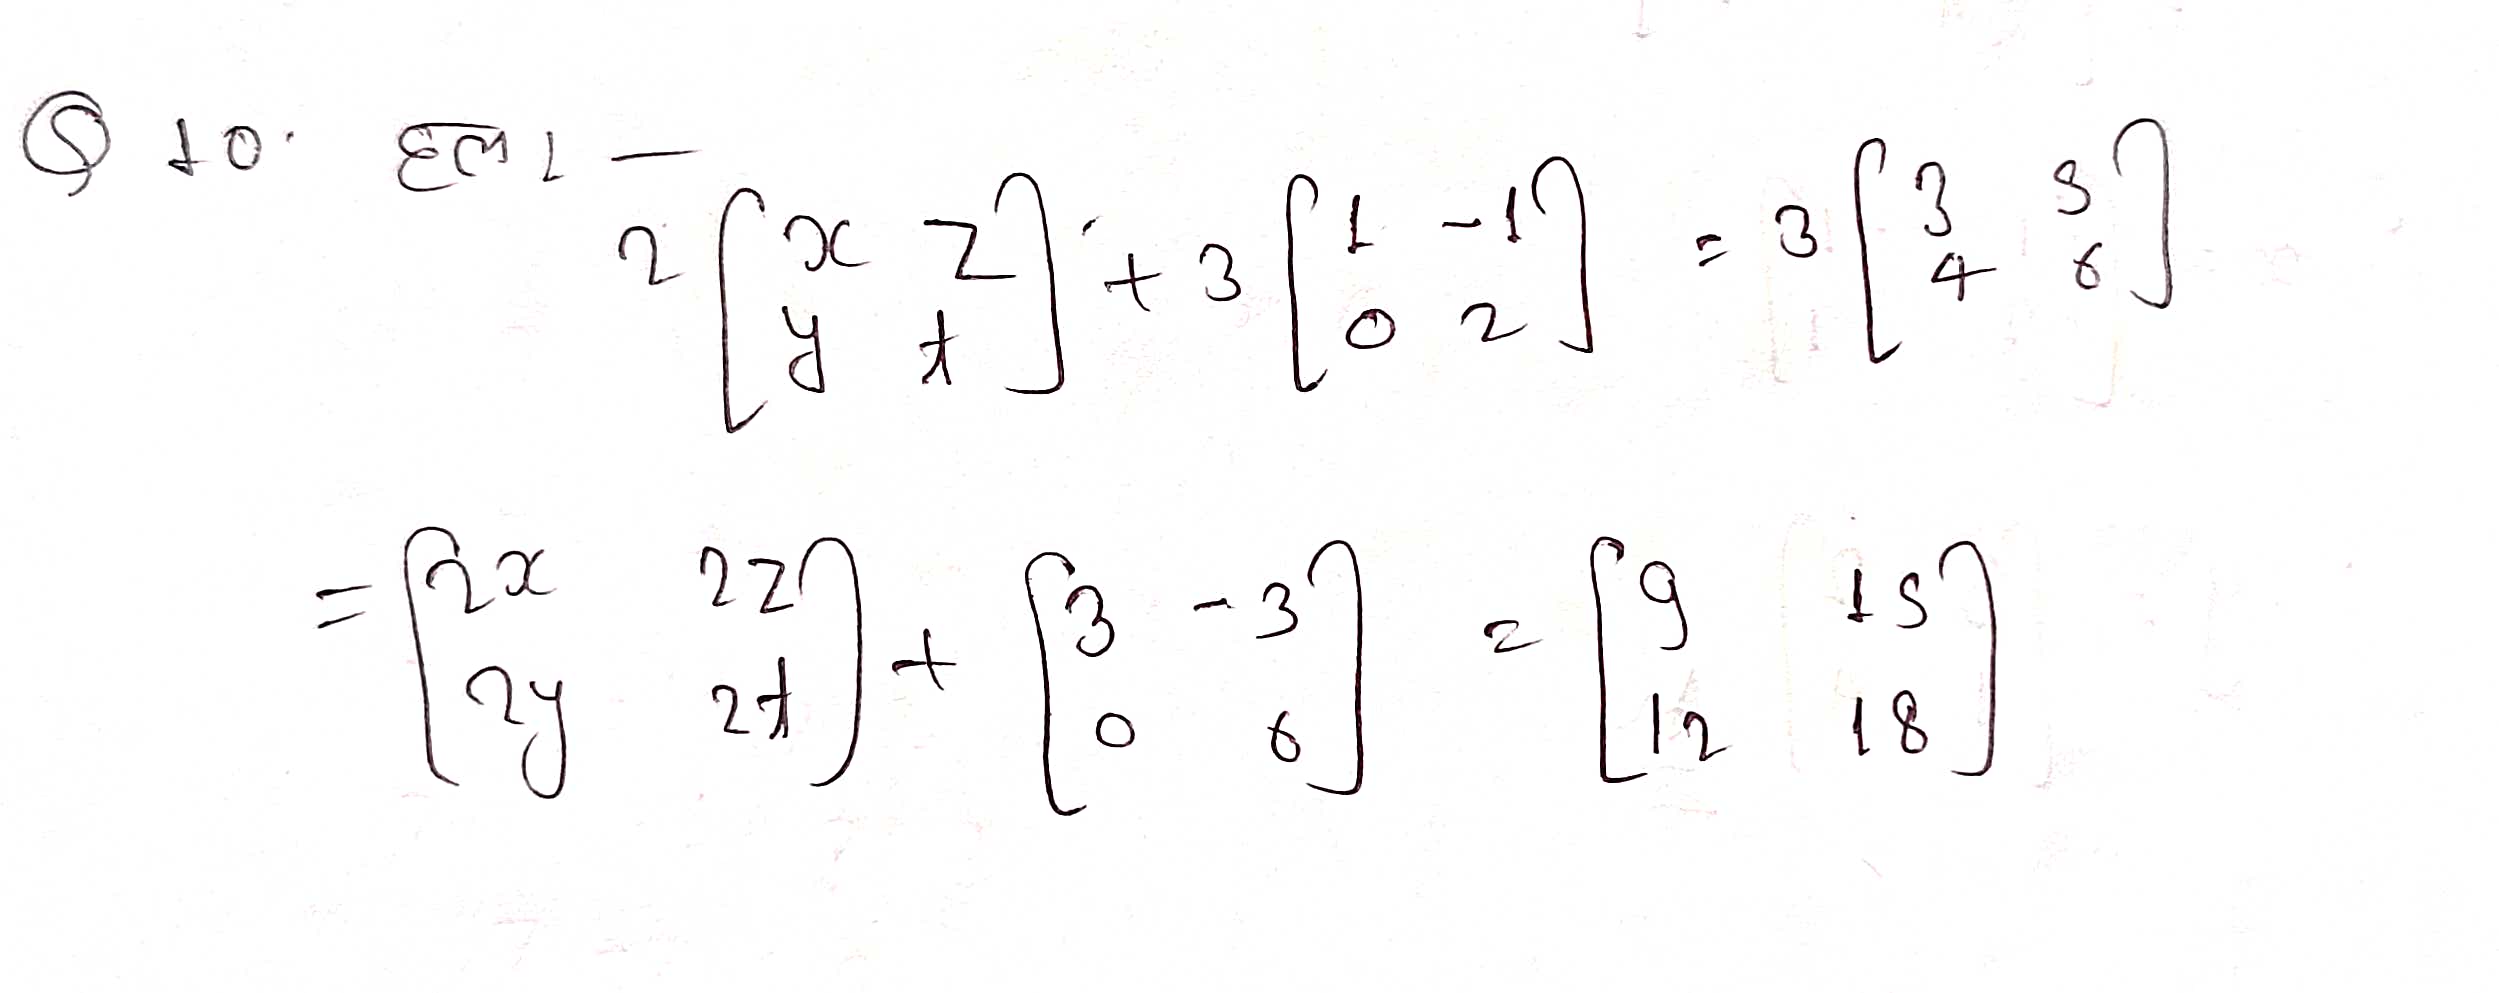 Q 10. हल —
2 [x z; y t] + 3 [1 -1; 0 2] = 3 [3 5; 4 6]
= [2x 2z; 2y 2t] + [3 -3; 0 6] = [9 15; 12 18]